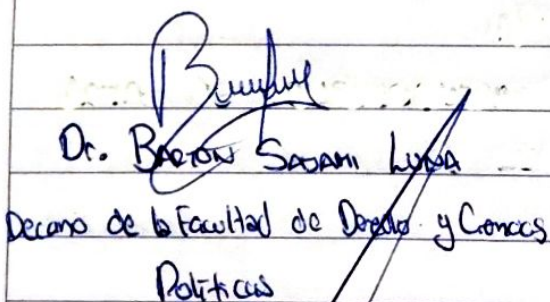 Dr. Barton Sasami Luna
Decano de la Facultad de Derecho y Ciencias
Políticas